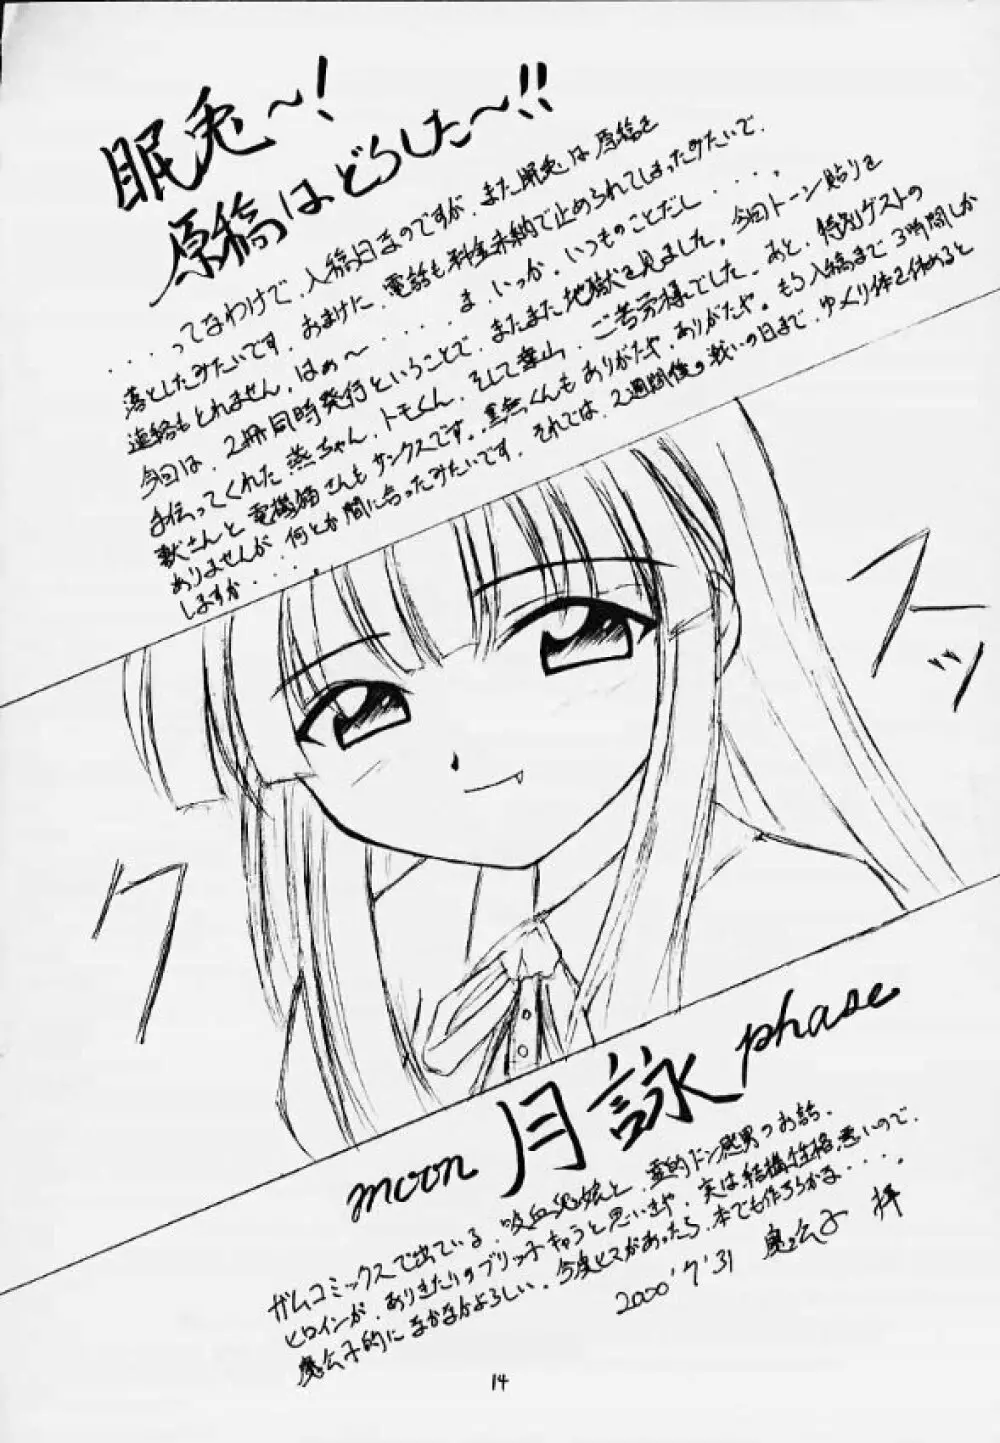 眠兎～！
原稿はどうした～!!
・・・ってなわけで、入稿日まのですが、また眠兎は原稿を
落としたみたいです。おまけに、電話も料金未納で止められてしまったみたいで、
連絡もとれません。はぁ～・・・・ま、いっか。いつものことだし・・・・。
今回は、2冊同時発行ということで、またまた地獄を見ました。今回トーン貼りを
手伝ってくれた 燕ちゃん、トモくん、そして葉山、ご苦労様でした。あと、特別ゲストの
獣さんと電機猫さんもサンクスです。 無くんもありがたや、ありがたや。もう入稿まで3時間しか
ありませんが、何とか間に合ったみたいです。それでは、2週間後の戦いの日まで、ゆくり体を休めると
しますか・・・・。
クスッ
moon 月詠 phase
ガムコミックスで出ている、吸血鬼娘と、霊的ドン感男のお話。
ヒロインが、ありきたりのブリッ子キャラと思いきや、実は結構性格悪いので、
魔公子的になかなかよろしい。今度ヒマがあったら、本でも作ろうかな・・・。
2000'7'31 魔公子 拝
14